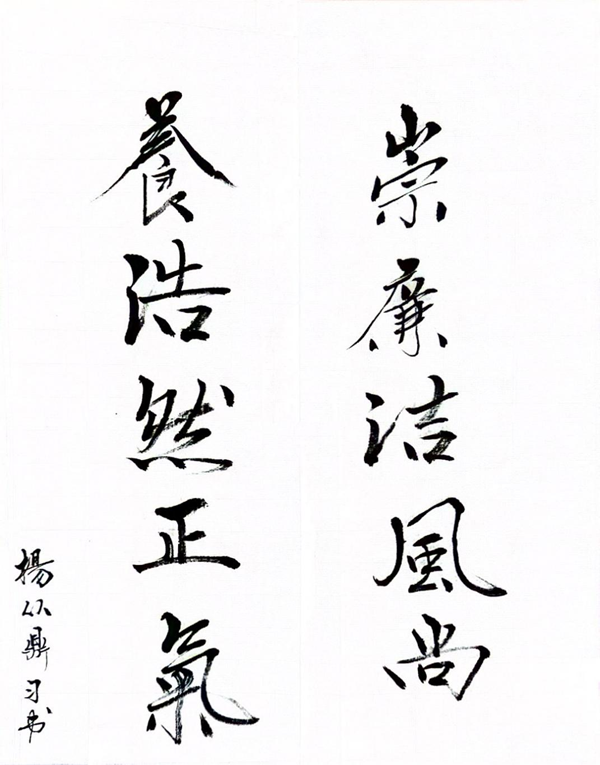 崇廉洁風尚
養浩然正氣
楊以鼎习书